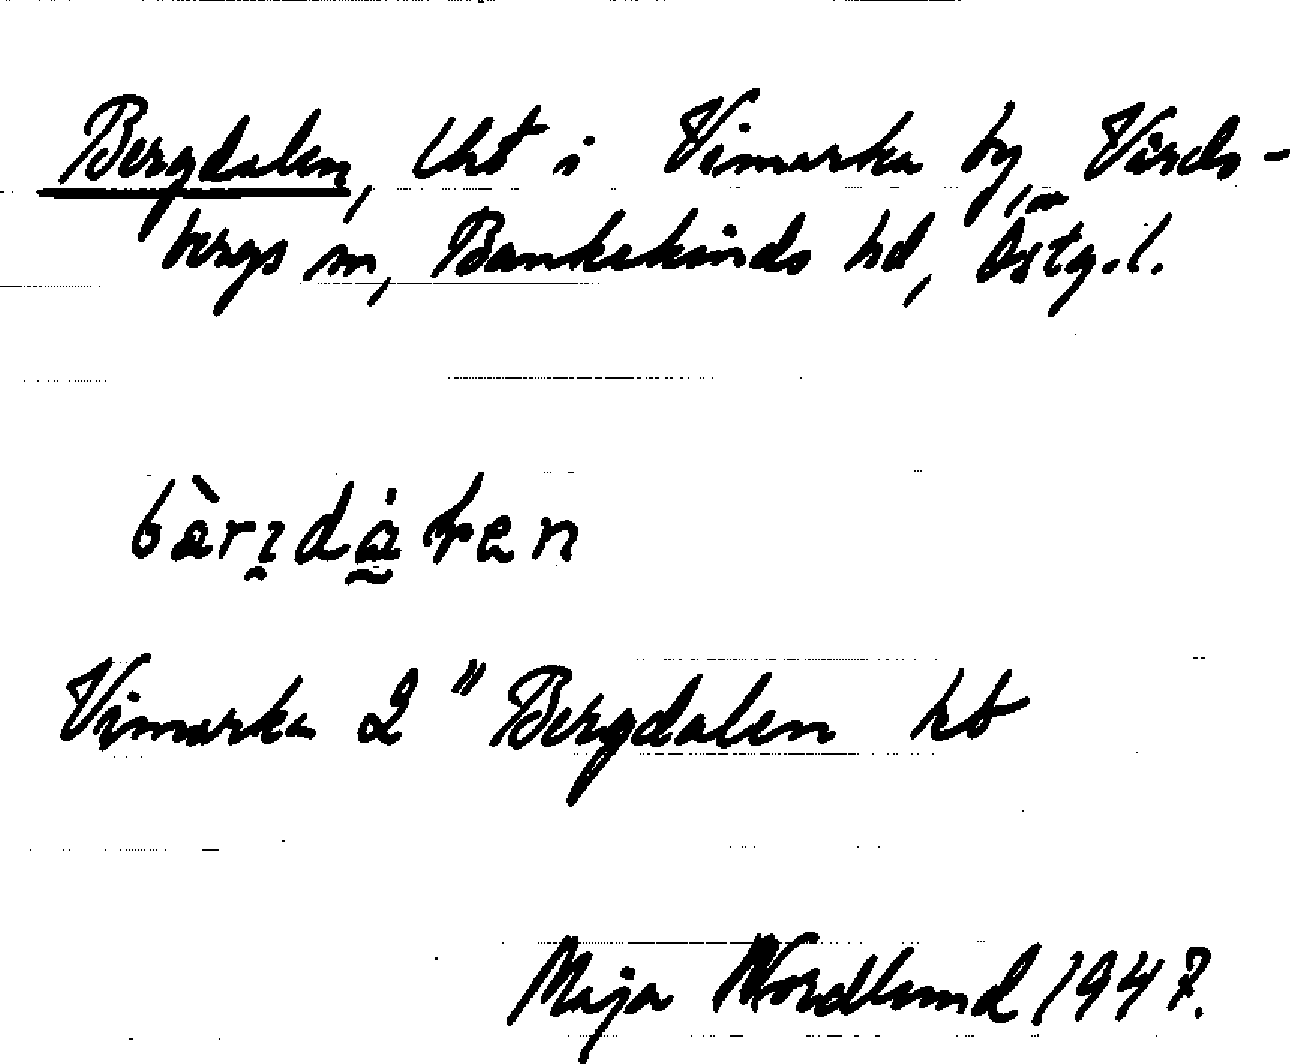 Bergdalen, lht i Vimarka by, Vårds-
bergs sn, Bankekinds hd, Östg. l.
Vimarka 2 " Bergdalen ht
Maja Nordlund 1947.